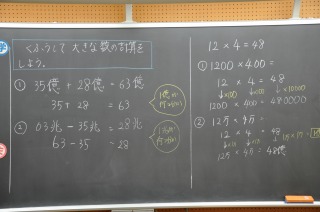 くふうして 大きな数の計算を
しよう。
① 35億 + 28億 = 63億
35 + 28 = 63
1億が
何こ分
② 63兆 − 35兆 = 28兆
63 − 35 = 28
1兆が
何こ分
12 × 4 = 48
① 1200 × 400 =
12 × 4 = 48
↓×100 ↓×100 ↓×10000
1200 × 400 = 480000
② 12万 × 4万 =
12 × 4 = 48
↓×1万 ↓×1万
12万 × 4万 = 48億